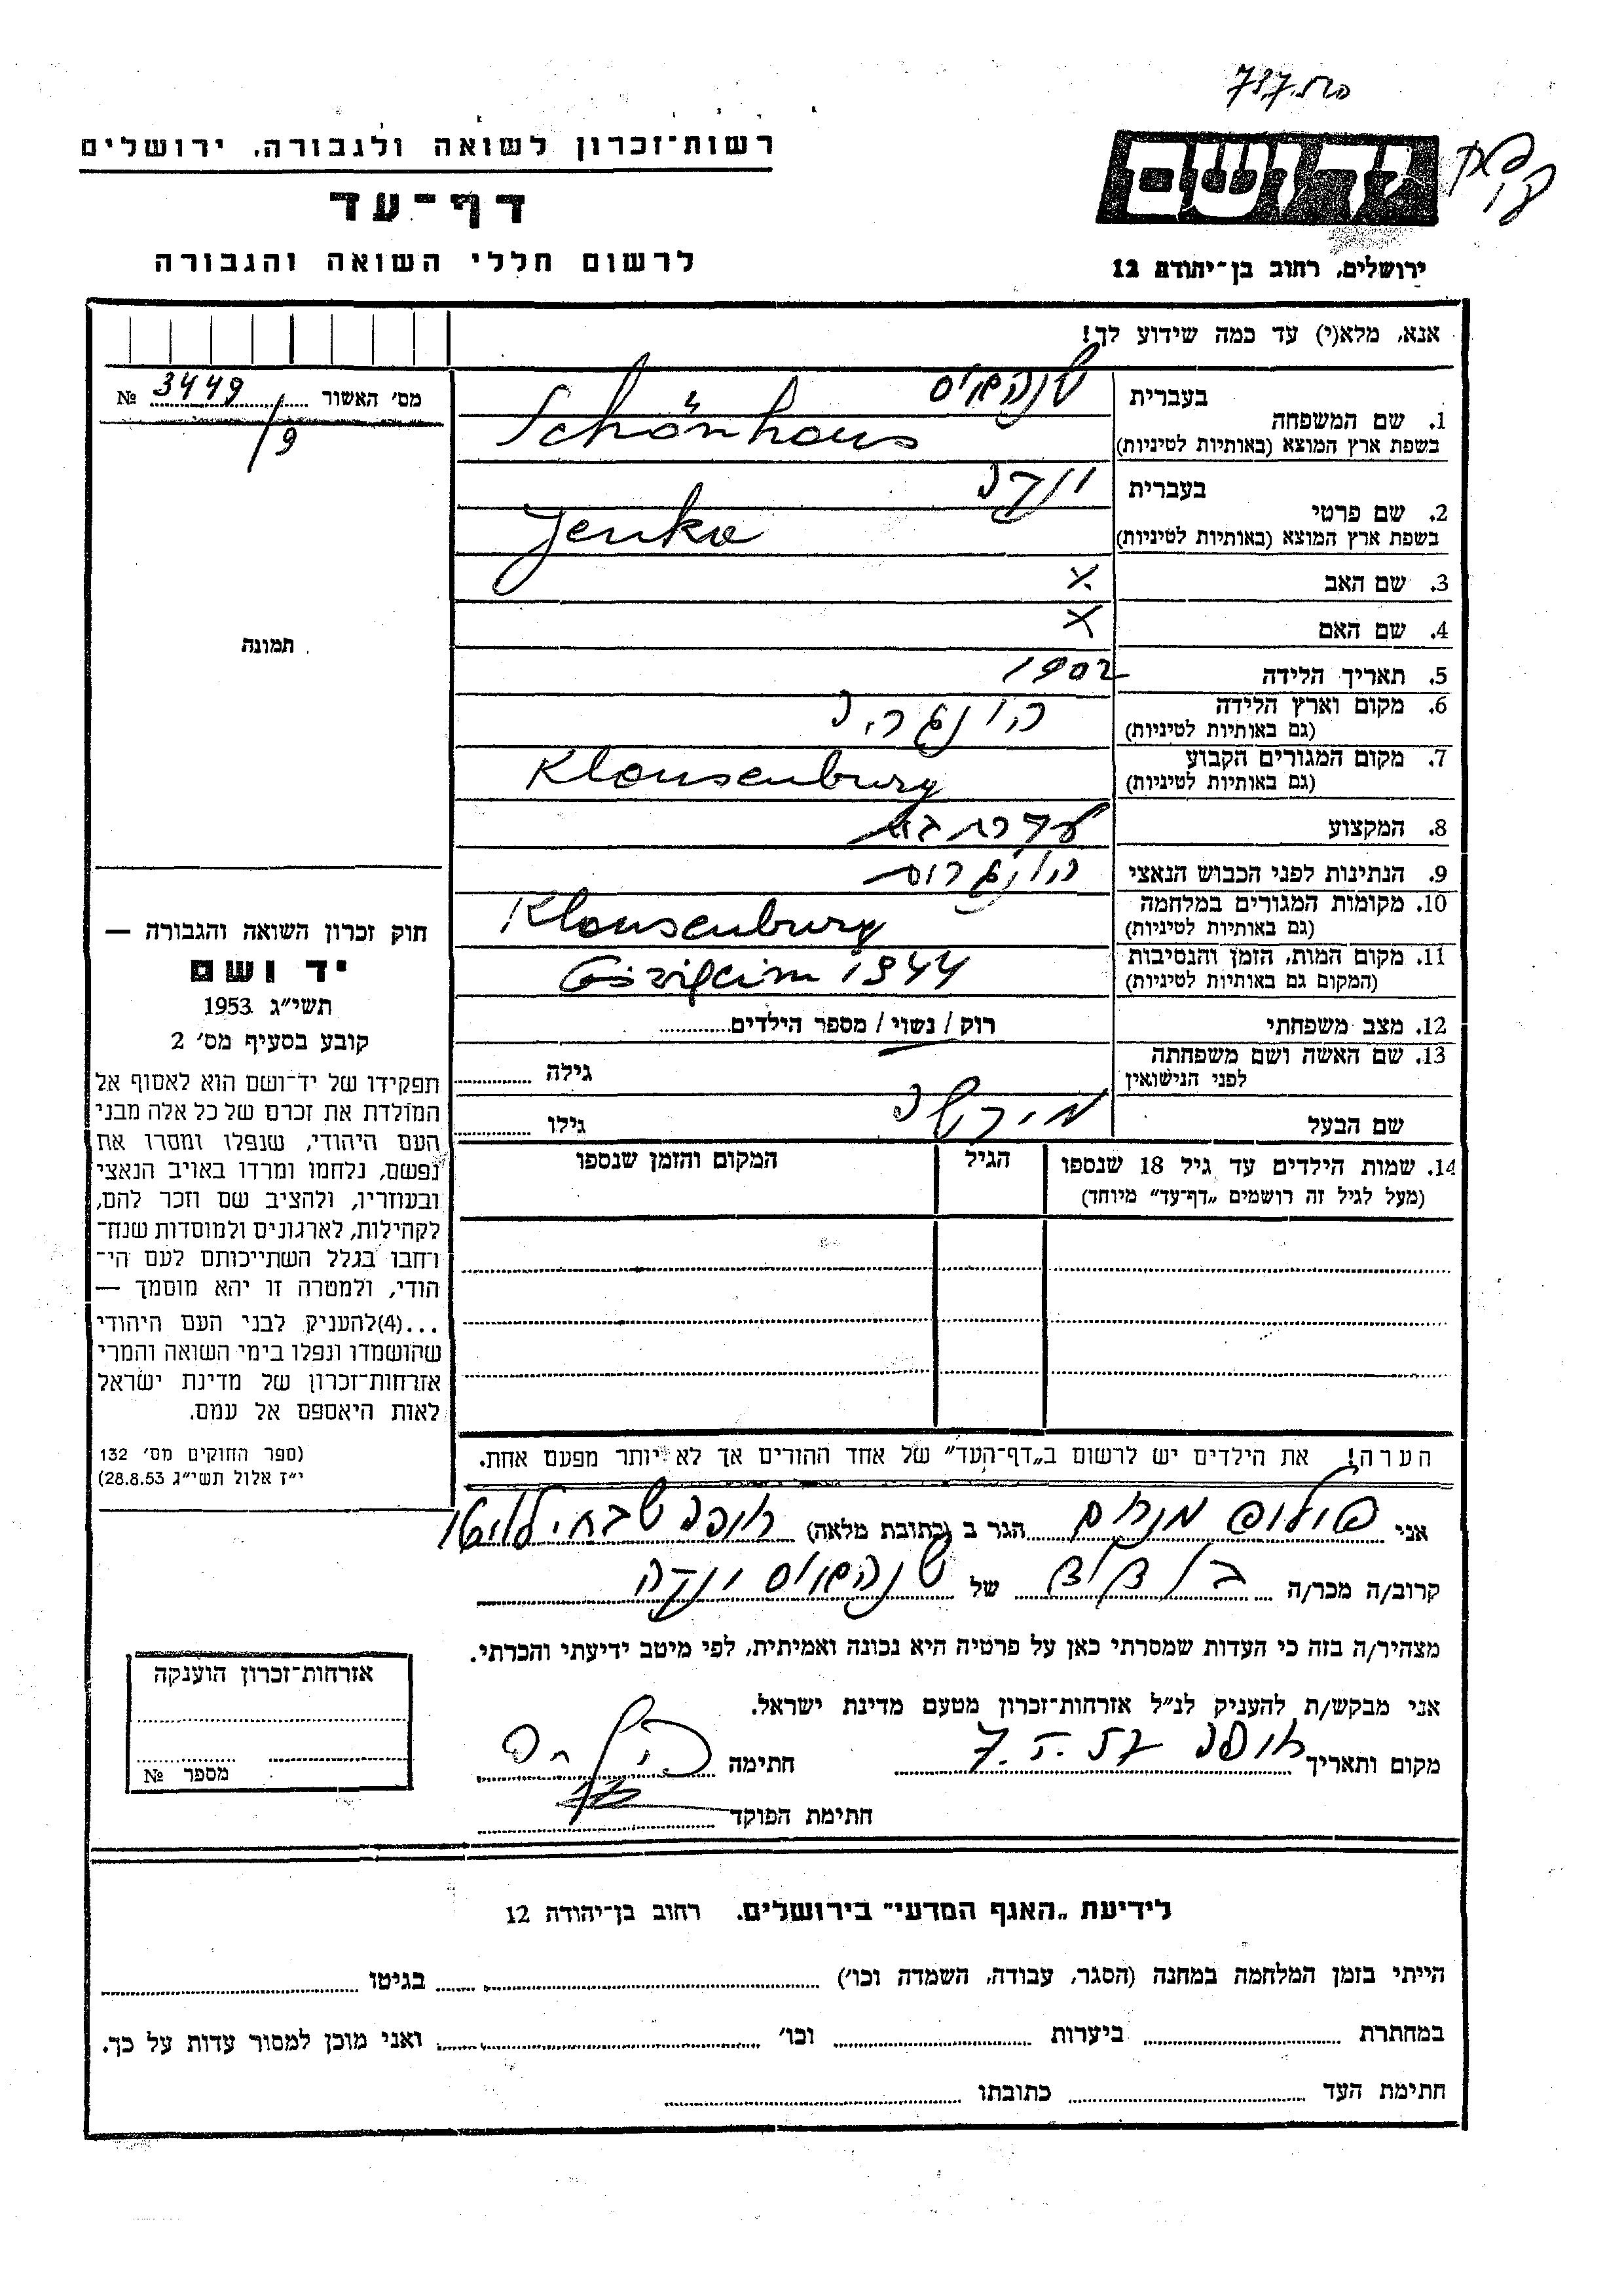 רשות־זכרון לשואה ולגבורה, ירושלים
דף־עד
לרשום חללי השואה והגבורה
יד ושם
ירושלים, רחוב בן־יהודה 12
אנא, מלא(י) עד כמה שידוע לך!
מס׳ האשור № 3449
/9
תמונה
1. שם המשפחה
בעברית שנהאוס
בשפת ארץ המוצא (באותיות לטיניות) Schönhaus
2. שם פרטי
בעברית
בשפת ארץ המוצא (באותיות לטיניות) Jenka
3. שם האב X
4. שם האם X
5. תאריך הלידה 1902
6. מקום וארץ הלידה
(גם באותיות לטיניות)
7. מקום המגורים הקבוע Klausenburg
(גם באותיות לטיניות)
8. המקצוע עקרת בית
9. הנתינות לפני הכבוש הנאצי
10. מקומות המגורים במלחמה Klausenburg
(גם באותיות לטיניות)
11. מקום המות, הזמן והנסיבות 1944
(המקום גם באותיות לטיניות)
12. מצב משפחתי רוק / נשוי / מספר הילדים
13. שם האשה ושם משפחתה
לפני הנישואין גילה
שם הבעל גילו
14. שמות הילדים עד גיל 18 שנספו
(מעל לגיל זה רושמים „דף־עד״ מיוחד)
הגיל
המקום והזמן שנספו
חוק זכרון השואה והגבורה —
יד ושם
תשי״ג 1953
קובע בסעיף מס׳ 2
תפקידו של יד־ושם הוא לאסוף אל
המולדת את זכרם של כל אלה מבני
העם היהודי, שנפלו ומסרו את
נפשם, נלחמו ומרדו באויב הנאצי
ובעוזריו, ולהציב שם וזכר להם,
לקהילות, לארגונים ולמוסדות שנח־
רחבו בגלל השתייכותם לעם הי־
הודי, ולמטרה זו יהא מוסמך —
...(4)להעניק לבני העם היהודי
שהושמדו ונפלו בימי השואה והמרי
אזרחות־זכרון של מדינת ישראל
לאות היאספם אל עמם.
(ספר החוקים מס׳ 132
י״ז אלול תשי״ג 28.8.53)
הערה! את הילדים יש לרשום ב„דף־העד״ של אחד ההורים אך לא יותר מפעם אחת.
אני מנחם הגר ב (כתובת מלאה)
קרוב/ה מכר/ה של שנהאוס
מצהיר/ה בזה כי העדות שמסרתי כאן על פרטיה היא נכונה ואמיתית, לפי מיטב ידיעתי והכרתי.
אני מבקש/ת להעניק לנ״ל אזרחות־זכרון מטעם מדינת ישראל.
מקום ותאריך 7. .57 חתימה
חתימת הפוקד
אזרחות־זכרון הוענקה
מספר №
לידיעת „האגף המדעי״ בירושלים, רחוב בן־יהודה 12
הייתי בזמן המלחמה במחנה (הסגר, עבודה, השמדה וכו׳) בגיטו
במחתרת ביערות וכו׳ ואני מוכן למסור עדות על כך.
חתימת העד כתובתו